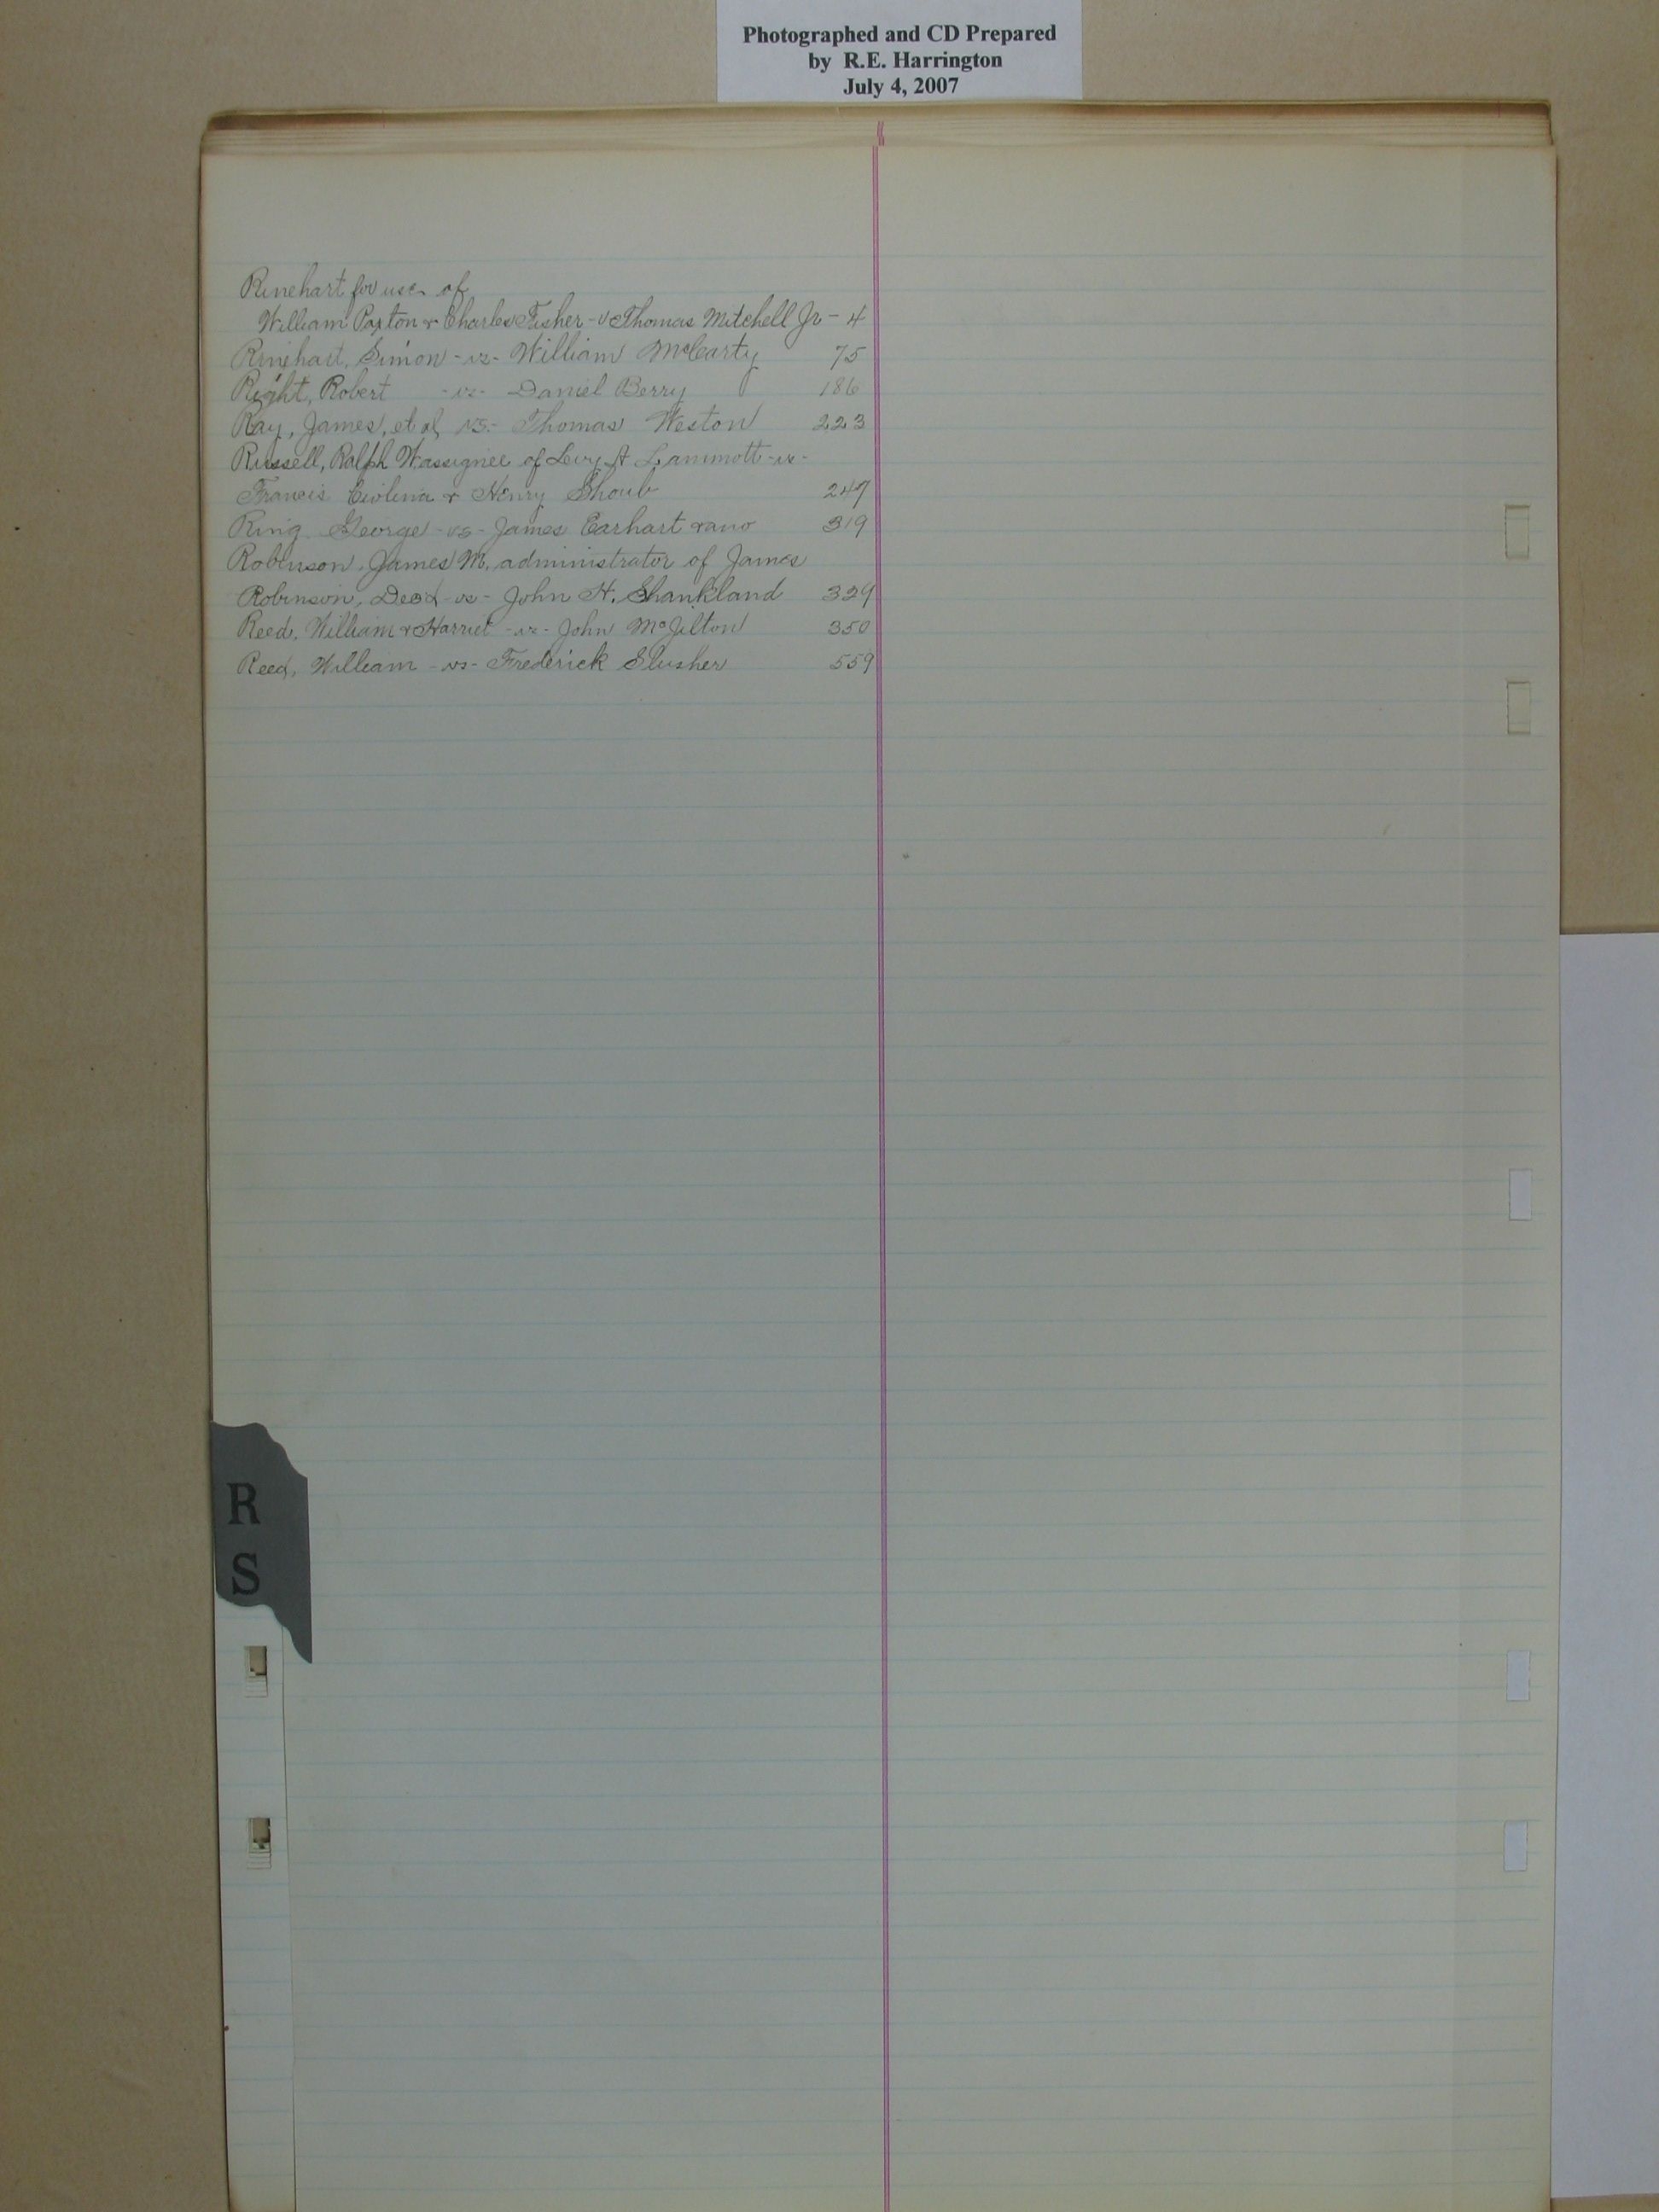 Photographed and CD Prepared
by R.E. Harrington
July 4, 2007
Rinehart for use of
William Paxton & Charles Fisher - vs Thomas Mitchell Jr - 4
Rinehart, Simon - vs - William McCarty 75
Right, Robert - vs - Daniel Berry 186
Ray, James, et al, vs - Thomas Weston 223
Russell, Ralph W assignee of Levy A Lammott - vs -
Francis & Henry Shoub 247
Ring George - vs - James Earhart & ano 319
Robinson, James M. administrator of James
Robinson, Decd - vs - John H. Shankland 329
Reed, William & Harriet - vs - John McJilton 350
Reed, William - vs - Frederick Slusher 559
R
S